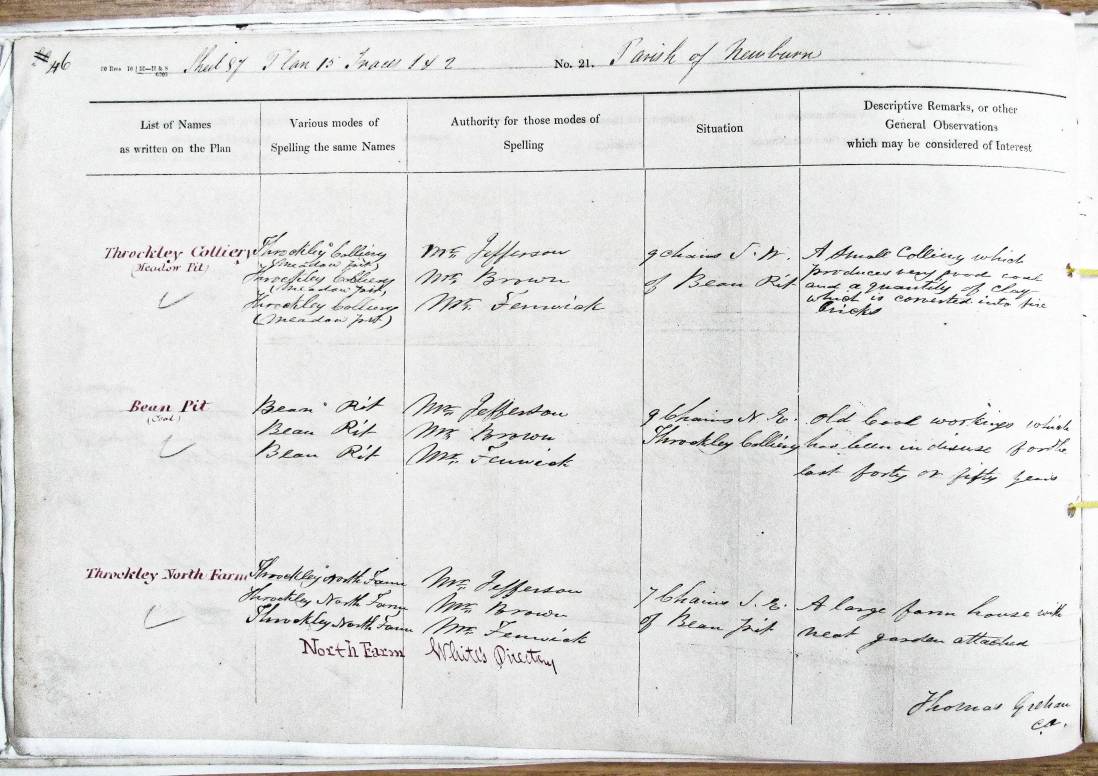 46
Sheet 87 Plan 15 Traces 1 & 2 No. 21. Parish of Newburn
List of Names
as written on the Plan
Various modes of
Spelling the same Names
Authority for those modes of
Spelling
Situation
Descriptive Remarks, or other
General Observations
which may be considered of Interest
Throckley Colliery
(Meadow Pit)
Throckley Colliery
(Meadow pit)
Throckley Colliery
(Meadow pit)
Throckley Colliery
(Meadow pit)
Mr. Jefferson
Mr. Brown
Mr. Fenwick
9 chains S. W.
of Bean Pit
A Small Colliery which
produces very good coal
and a quantity of clay
which is converted into fire
bricks
Bean Pit
(Coal)
Bean Pit
Bean Pit
Bean Pit
Mr. Jefferson
Mr. Brown
Mr. Fenwick
9 Chains N. E.
Throckley Colliery
Old Coal workings which
has been in disuse for the
last forty or fifty years
Throckley North Farm
Throckley North Farm
Throckley North Farm
Throckley North Farm
North Farm
Mr. Jefferson
Mr. Brown
Mr. Fenwick
White's Directory
7 Chains S. E.
of Bean pit
A large farm house with
neat garden attached
Thomas Graham
C.A.